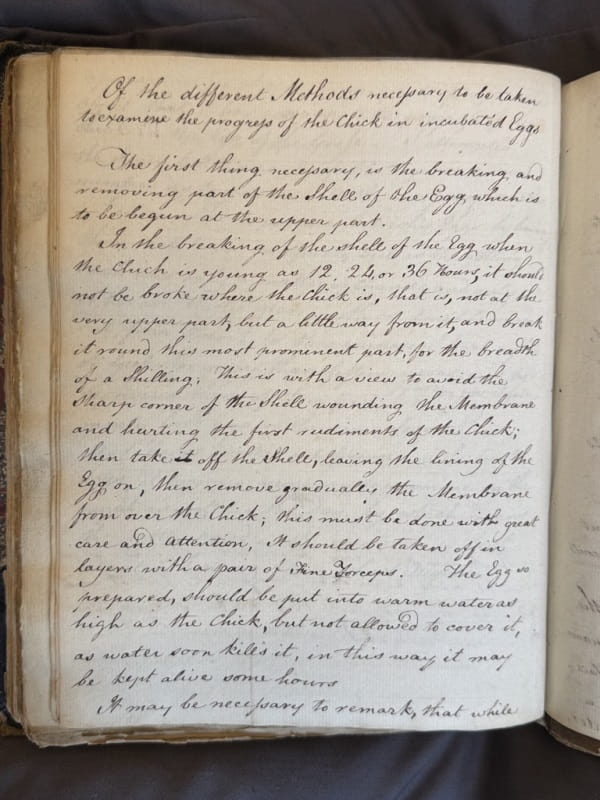 Of the different Methods necessary to be taken
to examine the progress of the Chick in incubated Eggs
The first thing necessary, is the breaking and
removing part of the Shell of the Egg, which is
to be begun at the upper part.
In the breaking of the shell of the Egg when
the Chick is young as 12. 24, or 36 Hours, it should
not be broke where the Chick is, that is, not at the
very upper part, but a little way from it, and break
it round this most prominent part, for the breadth
of a Shilling; This is with a view to avoid the
sharp corner of the Shell wounding the Membrane
and hurting the first rudiments of the Chick;
then take it off the Shell, leaving the lining of the
Egg on, then remove gradually the Membrane
from over the Chick; this must be done with great
care and attention, It should be taken off in
layers with a pair of Fine Forceps. The Egg so
prepared, should be put into warm water as
high as the Chick, but not allowed to cover it,
as water soon kills it, in this way it may
be kept alive some hours
It may be necessary to remark, that while